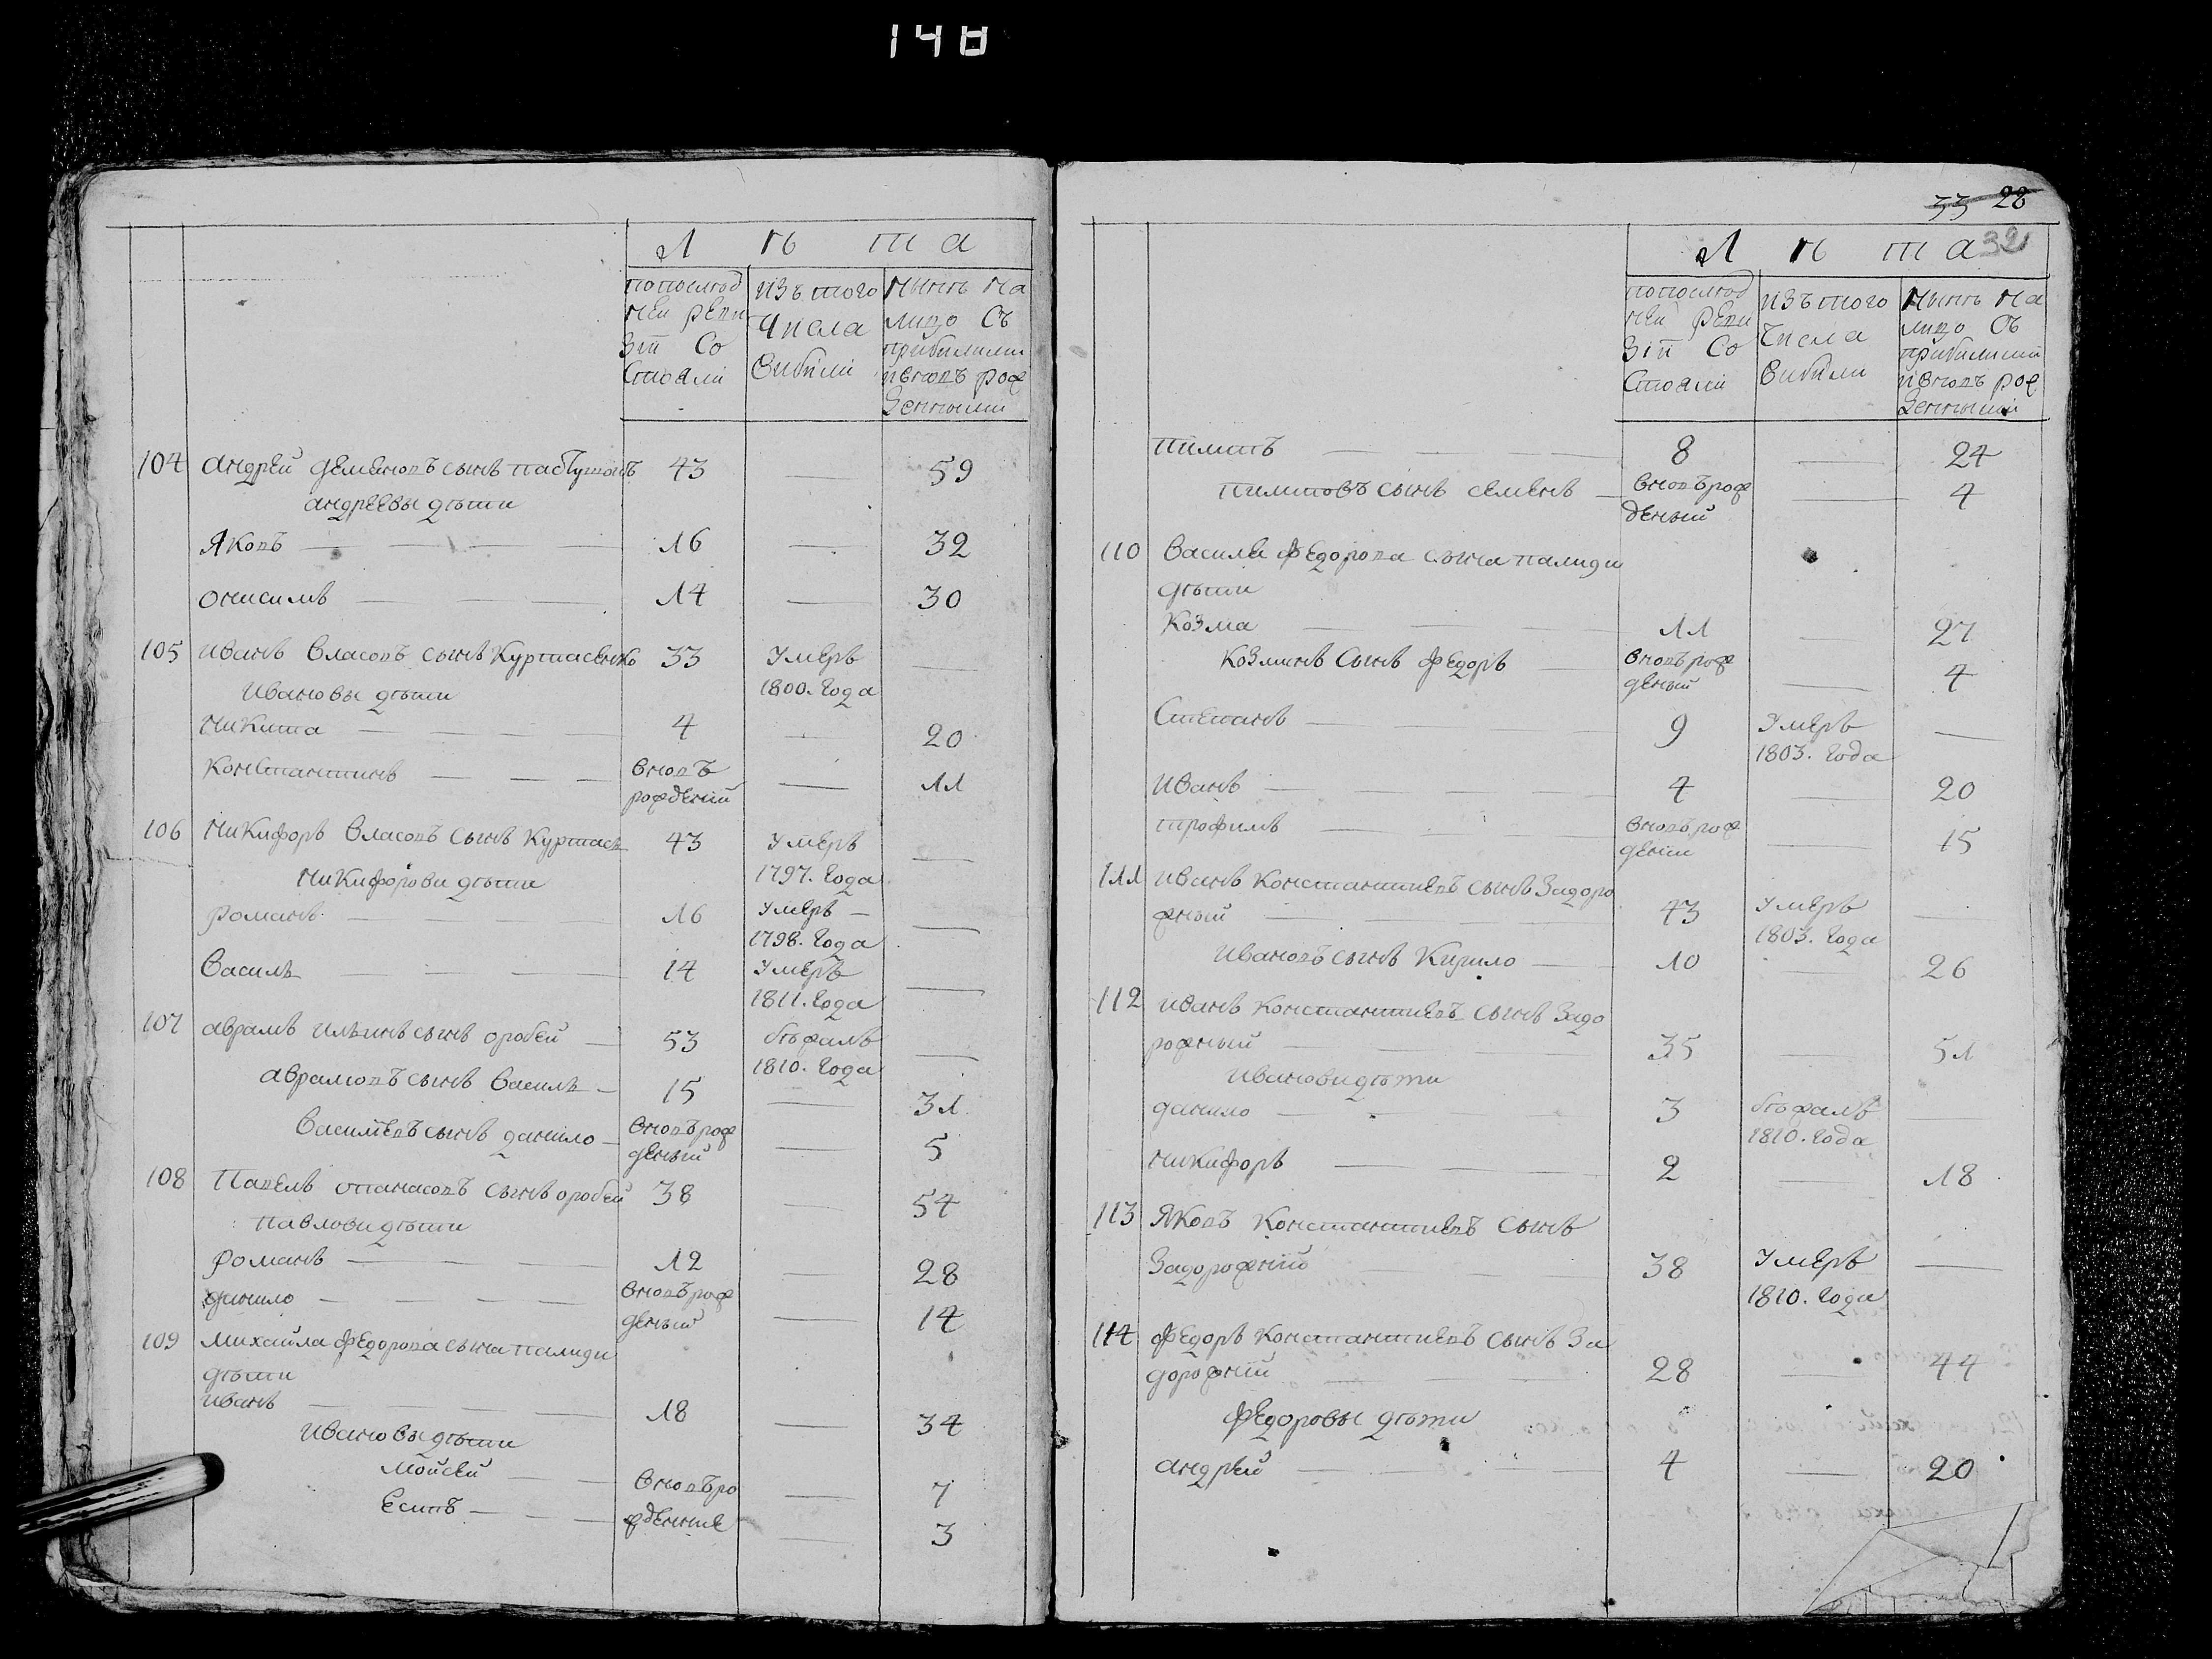 148
Л ѣ та
попослѣд ней реви зіи Со Стояли
изъ того Числа Вибили
Нынѣ на лицо Съ прибилими ивновь рож денными
104 андрей деменовъ сынъ 43 — 59
андреевы дѣти
Яковъ — 16 — 32
онисимъ — 14 — 30
105 иванъ власовъ сынъ Курпасенко 33 Умеръ 1800. Года —
Ивановы дѣти
Никита — 4 — 20
Константинъ — вновь рожденій — 11
106 Никифоръ власовъ сынъ Курпасъ 43 Умеръ 1797. Года —
Никифорови дѣти
романъ — 16 Умеръ — 1798. Года —
Василь — 14 Умеръ 1811. Года —
107 аврамъ ильинъ сынъ оробей — 53 бѣжалъ 1810. Года —
аврамовъ сынъ василь — 15 — 31
Василіевъ сынъ данило — вновь рож деный — 5
108 Павелъ опанасовъ сынъ оробей 38 — 54
павлови дѣти
романъ — 12 — 28
данило — вновь рож деный — 14
109 михайла федорова сына палиди
дѣти
иванъ — 18 — 34
ивановы дѣти
мойсей — вновь ро — 7
Есипъ — жденние — 3
33 28
32
Л ѣ та
попослѣд ней реви зіи Со Стояли
изъ того Числа Вибили
Нынѣ на лицо Съ прибилими ивновь рож денными
пилипъ — 8 — 24
пилиповъ сынъ семенъ — вновь рож деный — 4
110 василя федорова сына палиди
дѣти
Козма — 11 — 27
Козминъ сынъ федоръ — вновь рож деный — 4
Степанъ — 9 Умеръ 1803. Года —
иванъ — 4 — 20
трофимъ — вновь рож дени — 15
111 иванъ Константиевъ сынъ Задоро
жный — 43 Умеръ 1803. Года —
ивановъ сынъ Кирило — 10 — 26
112 иванъ Константиевъ сынъ Задо
рожный — 35 — 51
ивановы дѣти
данило — 3 бѣжалъ 1810. Года —
никифоръ — 2 — 18
113 Яковъ Константиевъ Сынъ
Задорожній — 38 Умеръ 1810. Года —
114 федоръ Константиевъ сынъ За
дорожній — 28 — 44
федоровы дѣти
андрей — 4 — 20